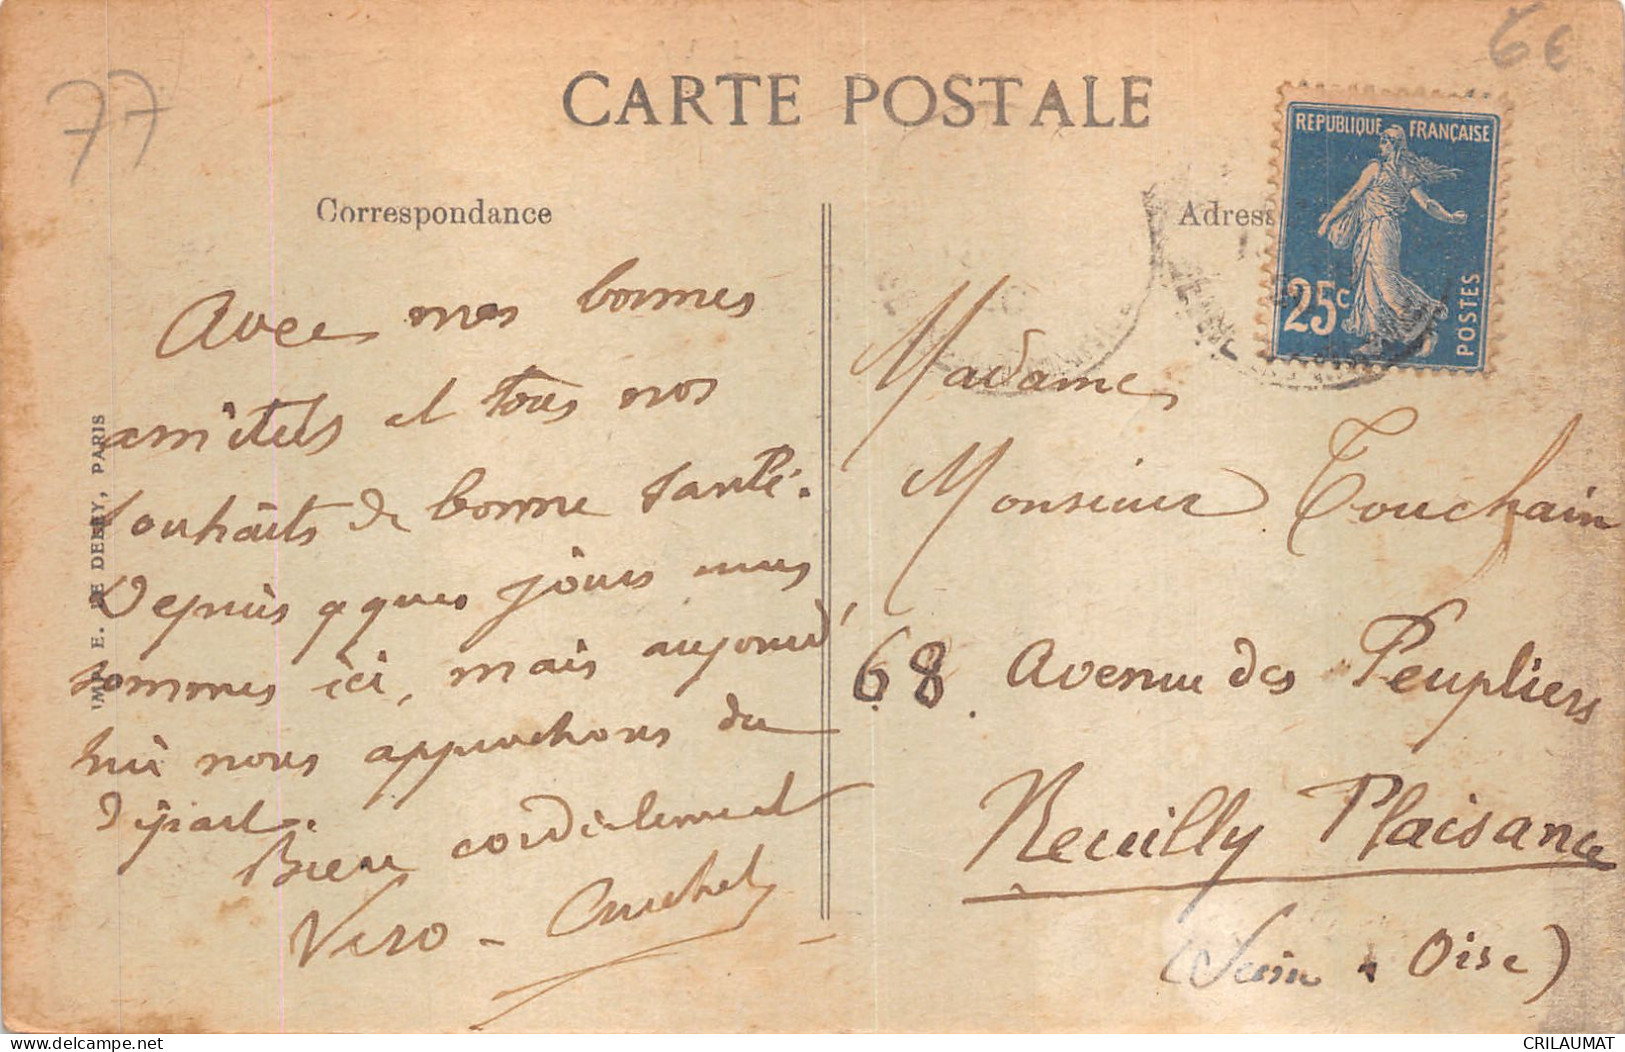 77
6€
CARTE POSTALE
Correspondance
Adress
REPUBLIQUE FRANÇAISE
25c
POSTES
IMP. E. LE DELEY, PARIS
Avec mes bonnes
amitiés et tous nos
souhaits de bonne santé.
Depuis qques jours nous
sommes ici, mais aujourd'
hui nous approchons du
départ.
Bien cordialement
Madame,
Monsieur Touchain
68. Avenue des Peupliers
Neuilly Plaisance
(Seine . Oise)
delcampe.net
CRILAUMAT